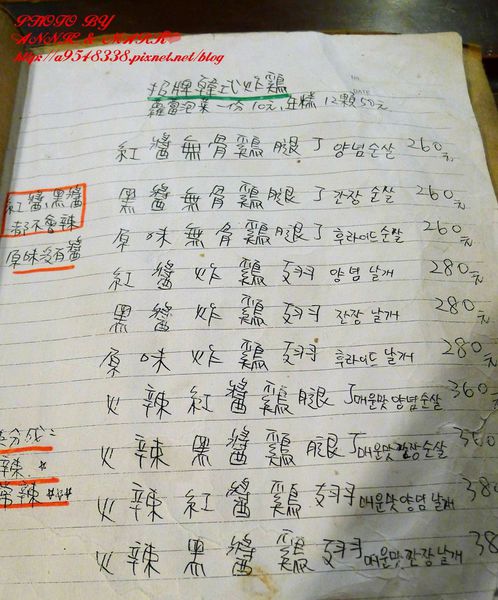 PHOTO BY
ANNIE & MARK
http://a9548338.pixnet.net/blog
招牌韓式炸鷄
蘿蔔泡菜一份10元,年糕12顆50元
紅醬無骨鷄腿丁 양념순살 260元
紅醬,黑醬
都不會辣
原味没有醬
黑醬無骨鷄腿丁 간장순살 260元
原味無骨鷄腿丁 후라이드순살 260元
紅醬炸鷄翅 양념날개 280元
黑醬炸鷄翅 간장날개 280元
原味炸鷄翅 후라이드날개 280元
火辣紅醬鷄腿丁 매운맛양념순살 360
分成:
辣 *
常辣 ***
火辣黑醬鷄腿丁 매운맛간장순살 360
火辣紅醬鷄翅 매운맛양념날개 38
火辣黑醬鷄翅 매운맛간장날개 38